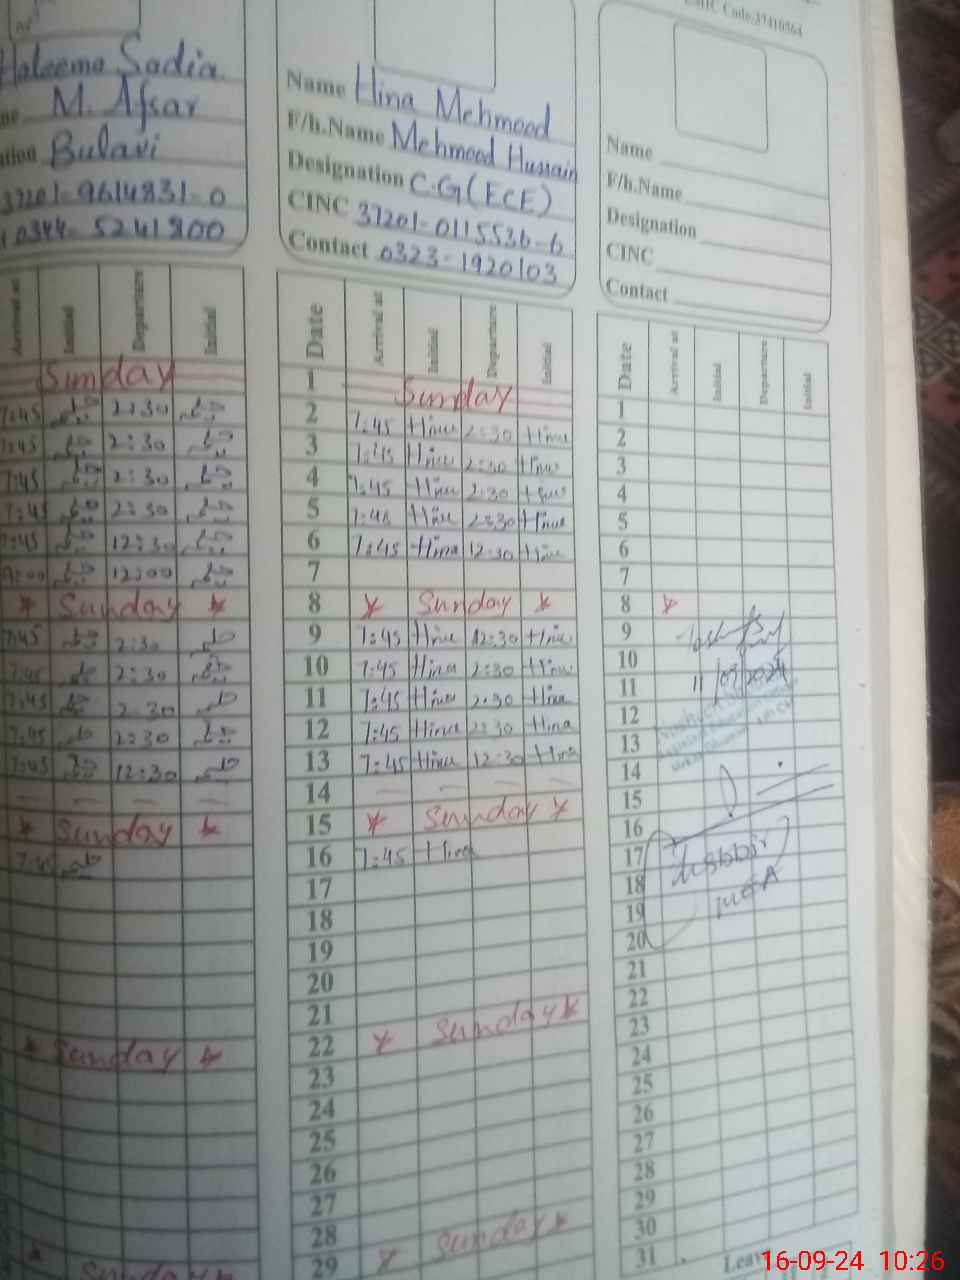 Code:37410564
Haleema Sadia
M. Afsar
Bulavi
37201-9614831-0
0344-5241800
Arrival at Initial Departure Initial
Sunday
7:45 2:30
7:45 2:30
7:45 2:30
7:45 2:30
7:45 12:30
9:00 12:00
* Sunday *
7:45 2:30
7:45 2:30
7:45 2:30
7:45 2:30
7:45 12:30
— — — —
* Sunday *
7:45
* Sunday *
Sunday
Name Hina Mehmood
F/h.Name Mehmood Hussain
Designation C.G(ECE)
CINC 37201-0115536-6
Contact 0323-1920103
Date Arrival at Initial Departure Initial
1 Sunday
2 7:45 Hina 2:30 Hina
3 7:45 Hina 2:30 Hina
4 7:45 Hina 2:30 Hina
5 7:45 Hina 2:30 Hina
6 7:45 Hina 12:30 Hina
7
8 * Sunday *
9 7:45 Hina 12:30 Hina
10 7:45 Hina 2:30 Hina
11 7:45 Hina 2:30 Hina
12 7:45 Hina 2:30 Hina
13 7:45 Hina 12:30 Hina
14 — — — —
15 * Sunday *
16 7:45 Hina
17
18
19
20
21
22 * Sunday *
23
24
25
26
27
28
29 * Sunday *
Name
F/h.Name
Designation
CINC
Contact
Date Arrival at Initial Departure Initial
1
2
3
4
5
6
7
8 *
9
10
11 11/09/2024
12
13
14
15
16
17
18
19
20
21
22
23
24
25
26
27
28
29
30
31
Leav
16-09-24 10:26